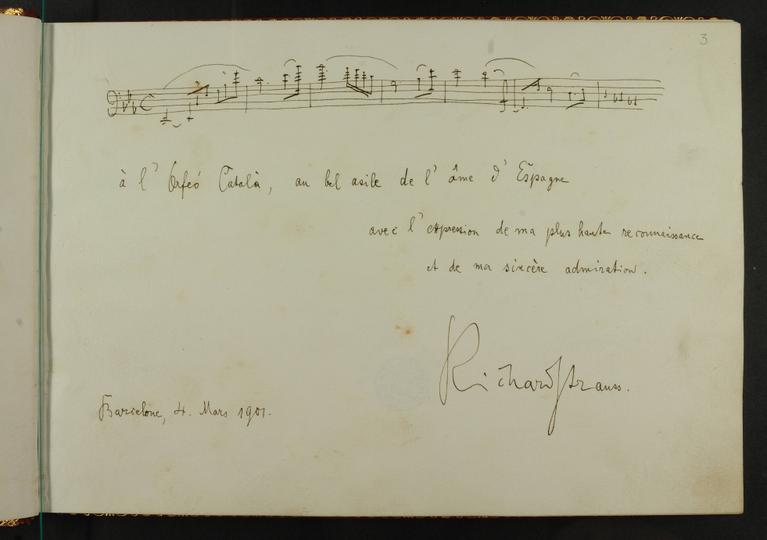 3
à l'Orfeó Català, au bel asile de l'âme d'Espagne
avec l'expression de ma plus haute reconnaissance
et de ma sincère admiration.
Richard Strauss.
Barcelone, 4. Mars 1901.